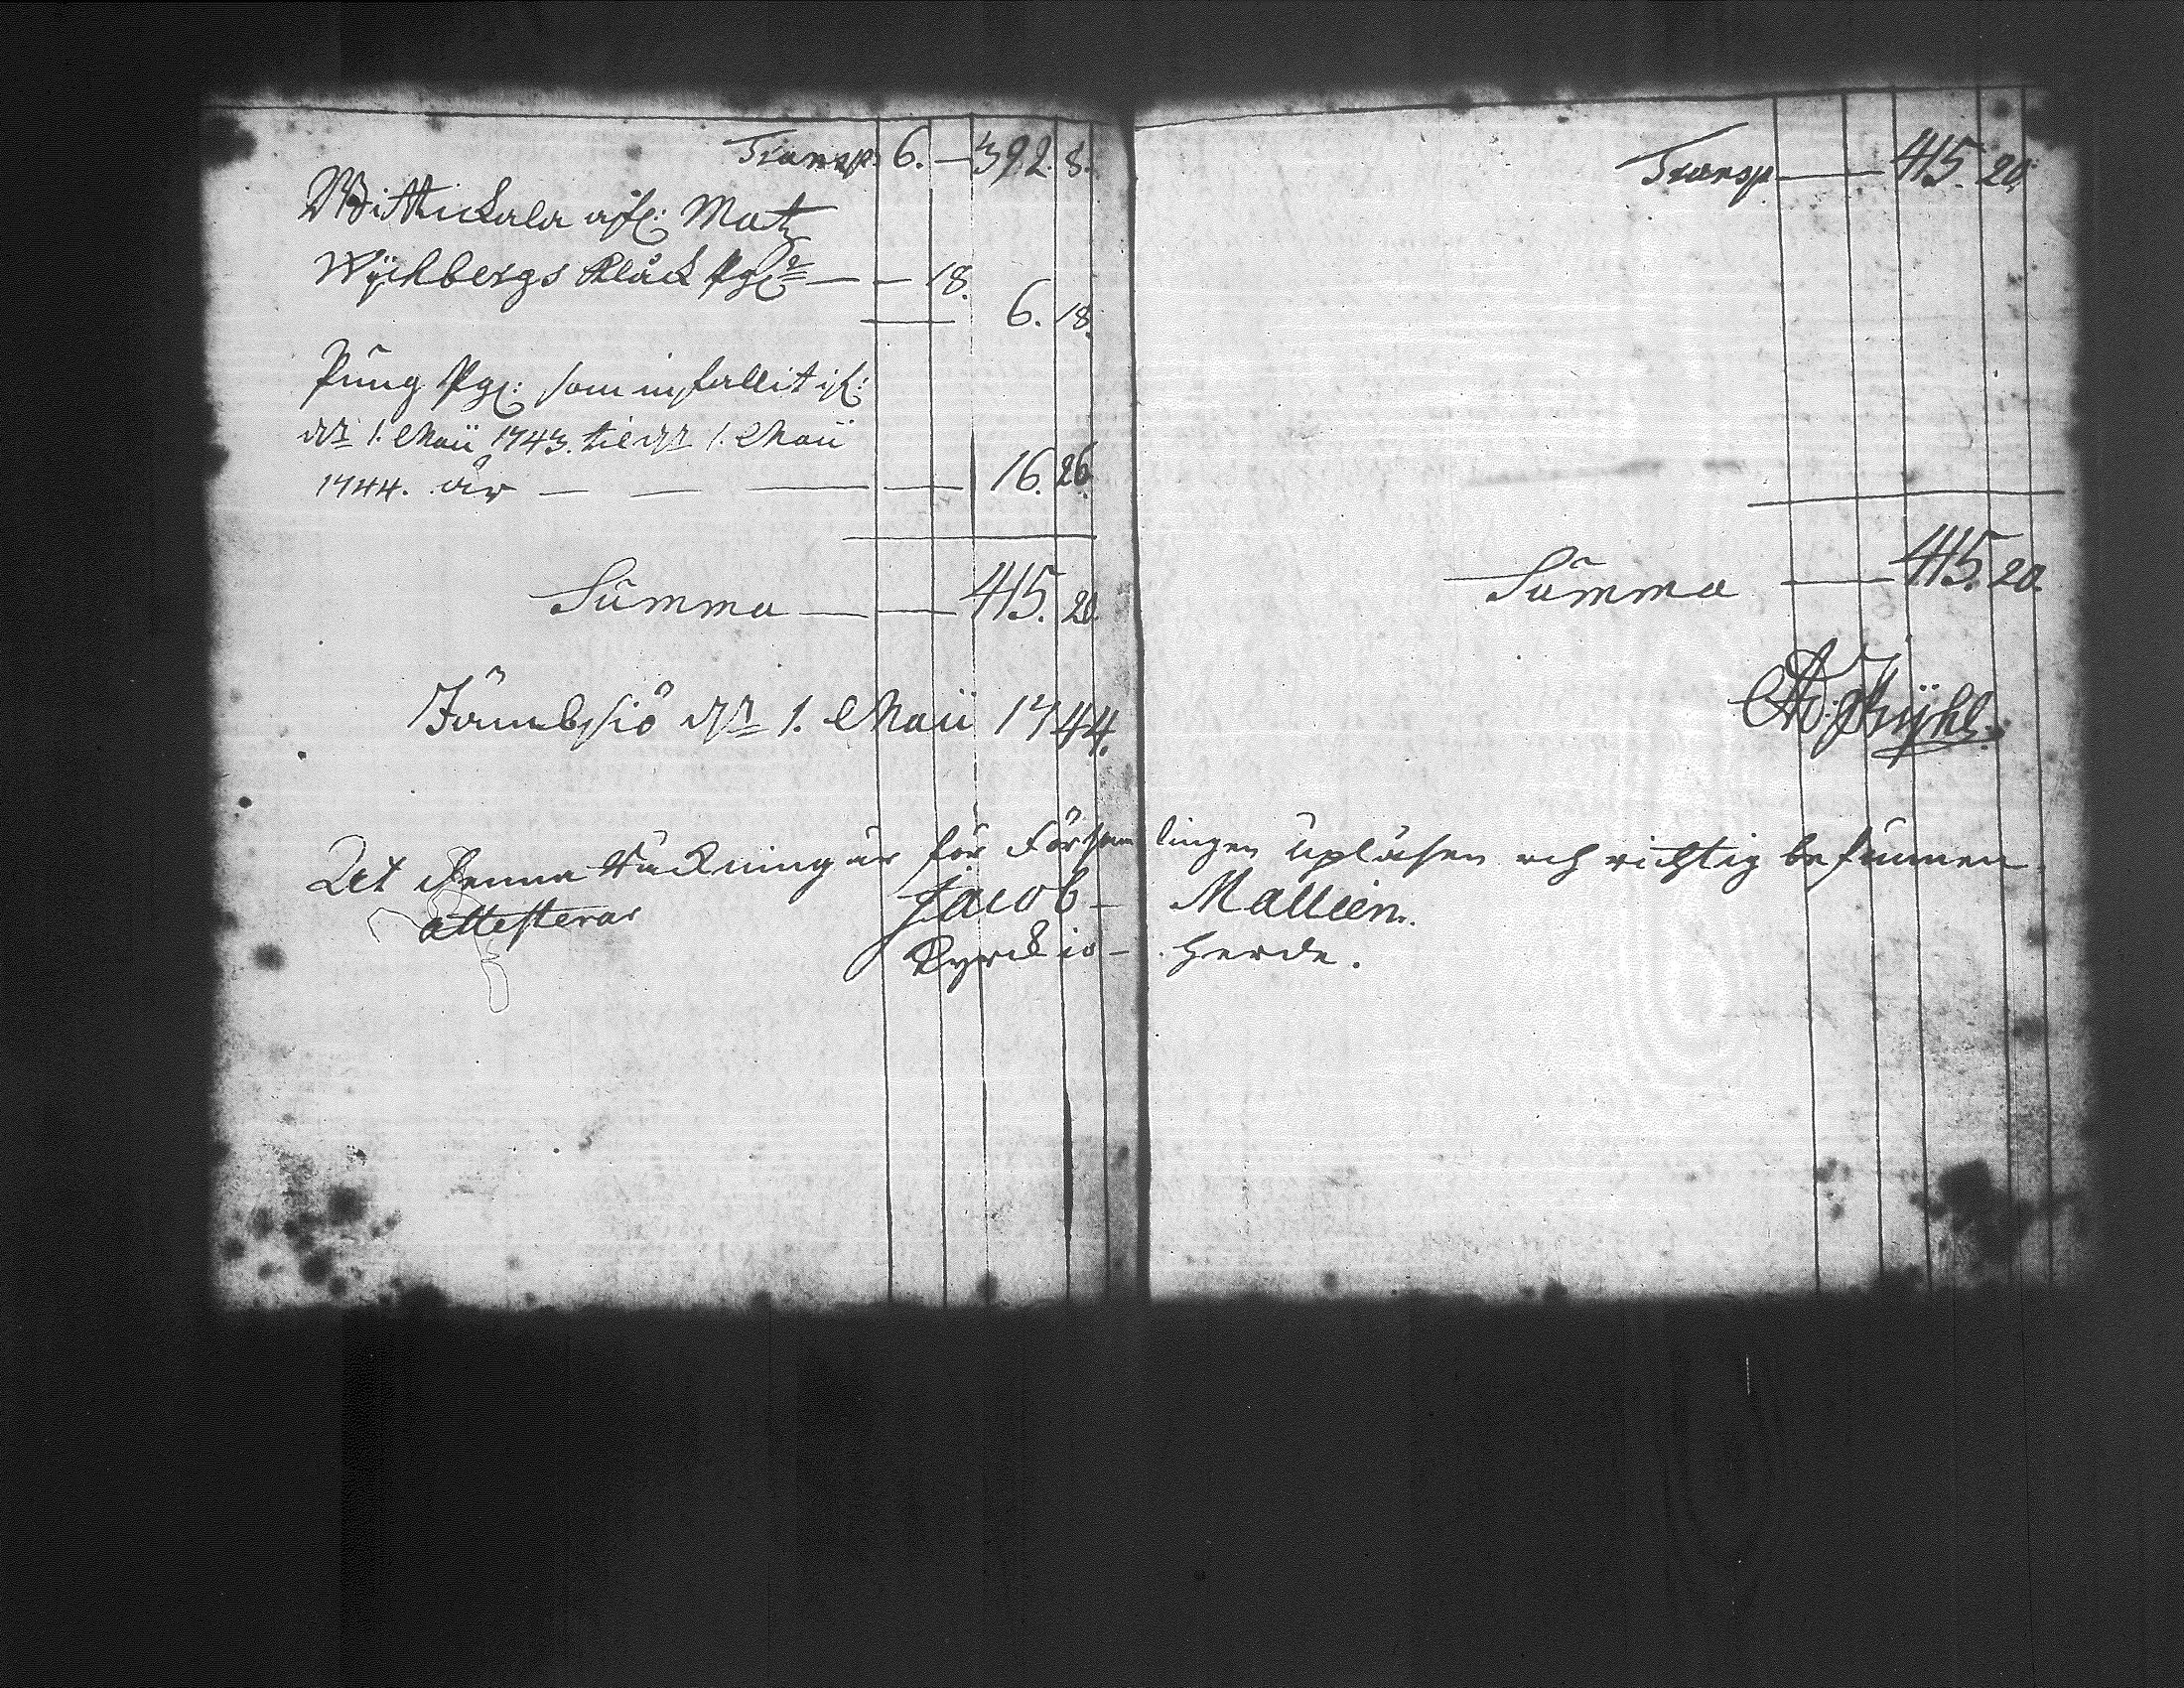 Transp. 6. — 392. 8.
Wittickala afl: Matz
Wychbergs klåck Pgr — — 18.
6. 18.
Pung Pgr: som infallit ifr:
dn 1. Maii 1743. til dn 1. Maii
1744. år — — — — 16. 26.
Summa — — 415. 20.
Jämbsiö dn 1. Maii 1744.
Transp — 415. 20.
Summa — 415. 20.
At denna Räckning är för Församlingen upläsen och richtig befunnen
attesterar Jacob — Mallein.
Kyrckio — herde.